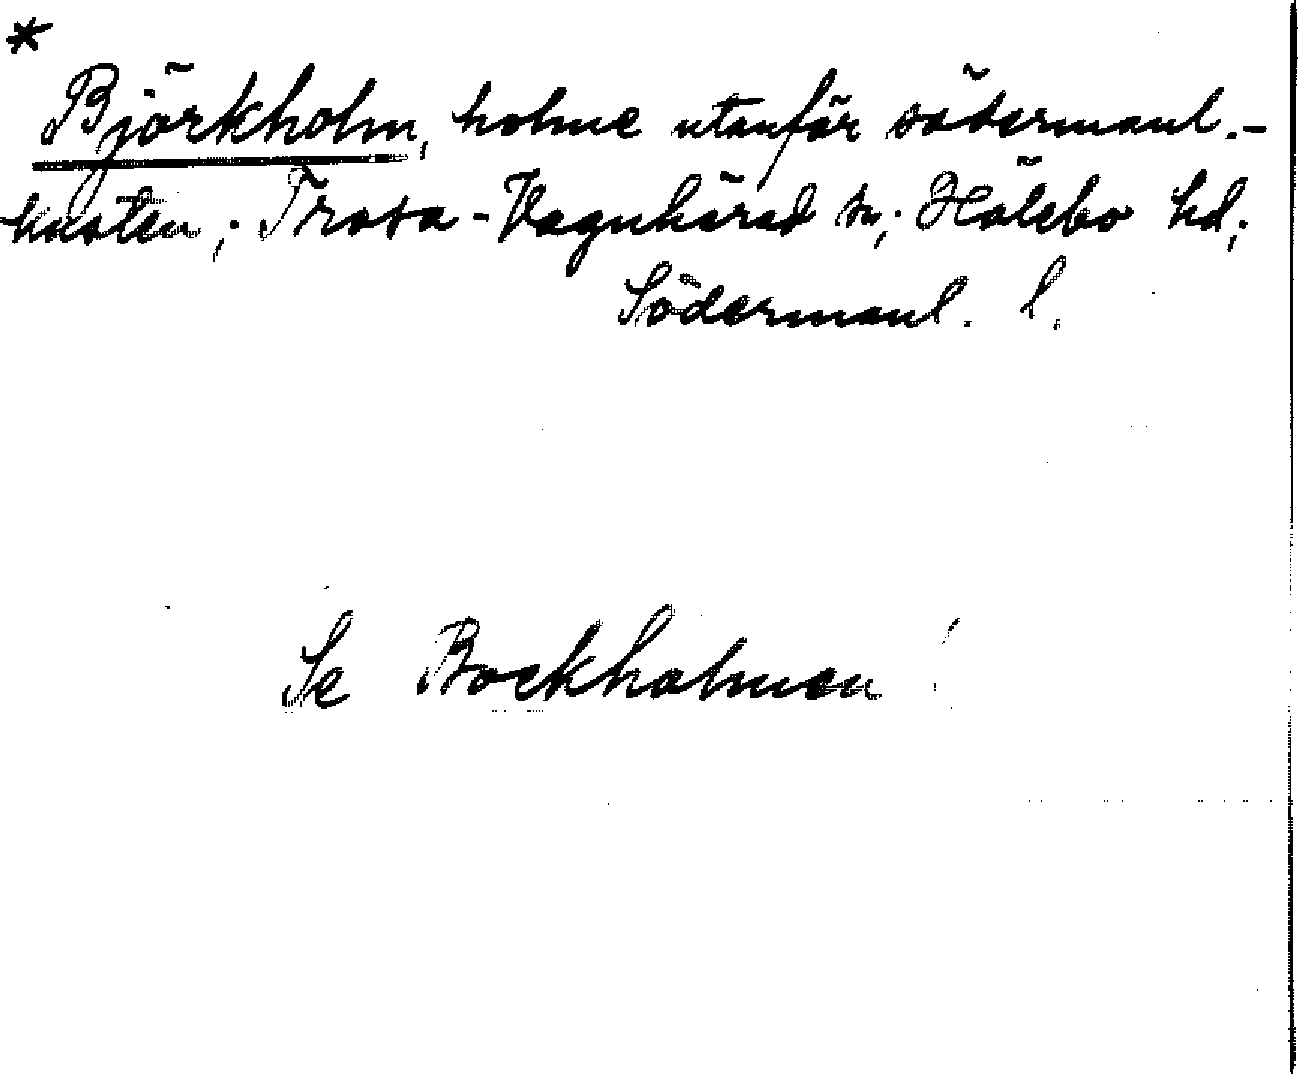 *
Björkholm, holme utanför södermanl.-
kusten; Trosa-Vagnhärad sn; Hölebo hd;
Södermanl. l.
Se Bockholmen!